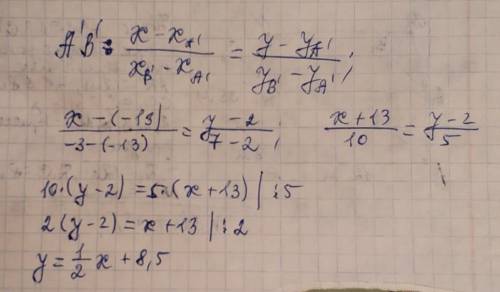 A'B': (x - x_A')/(x_B' - x_A') = (y - y_A')/(y_B' - y_A');
(x - (-13))/(-3 - (-13)) = (y - 2)/(7 - 2); (x + 13)/10 = (y - 2)/5
10·(y - 2) = 5·(x + 13) | :5
2(y - 2) = x + 13 | :2
y = 1/2 x + 8,5